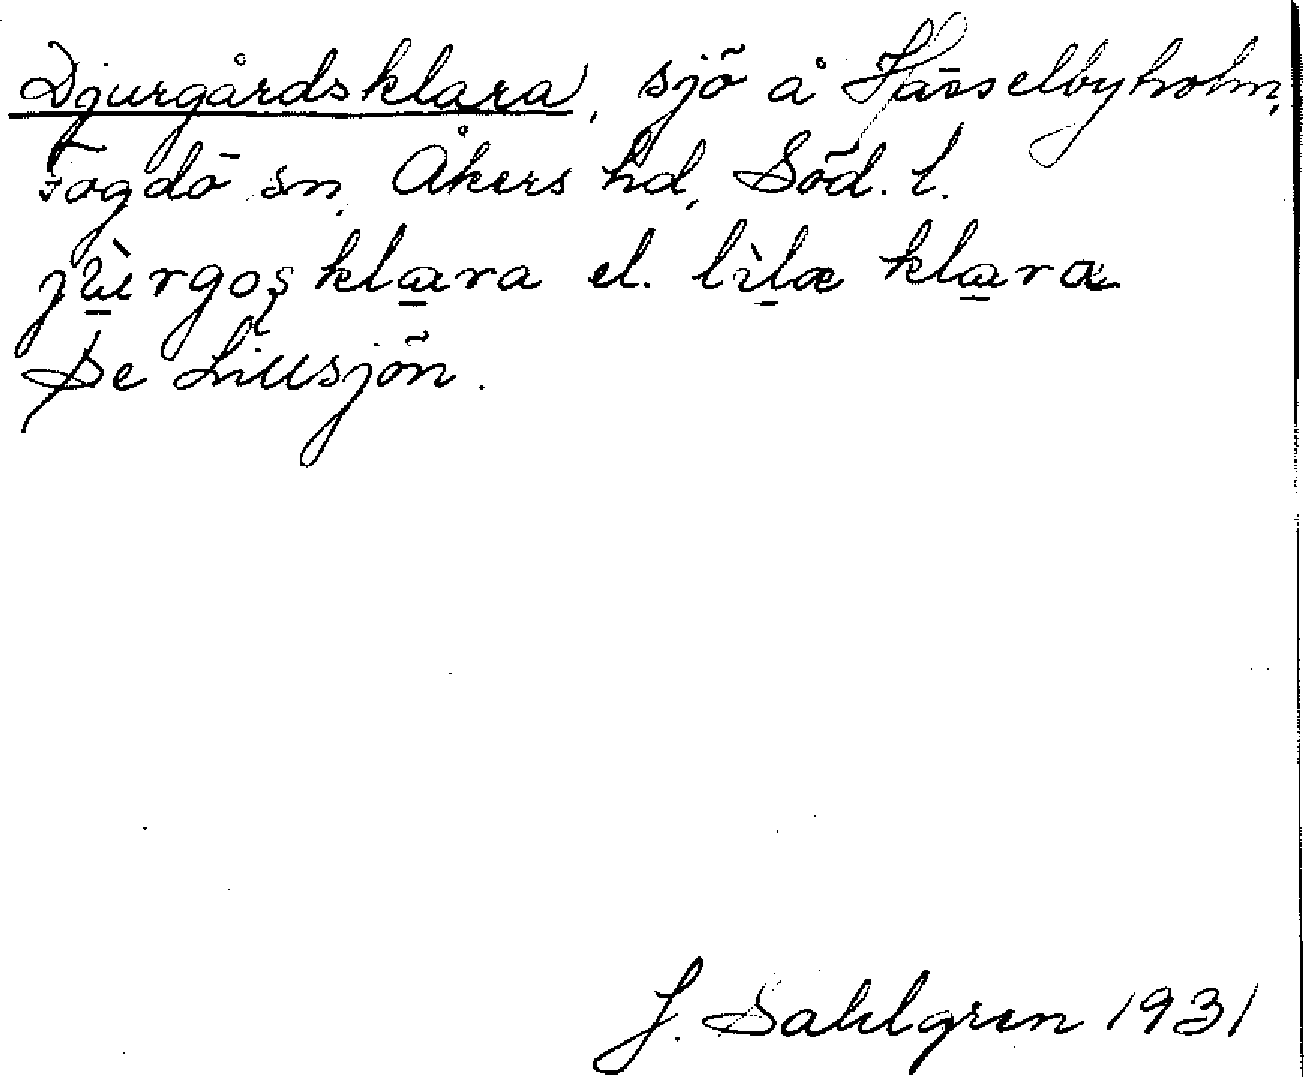 Djurgårdsklara, sjö å Hässelbyholm,
Fogdö sn, Åkers hd, Söd. l.
jùrgoʂklara el. lìlæ klara
Se Lillsjön.
J. Sahlgren 1931